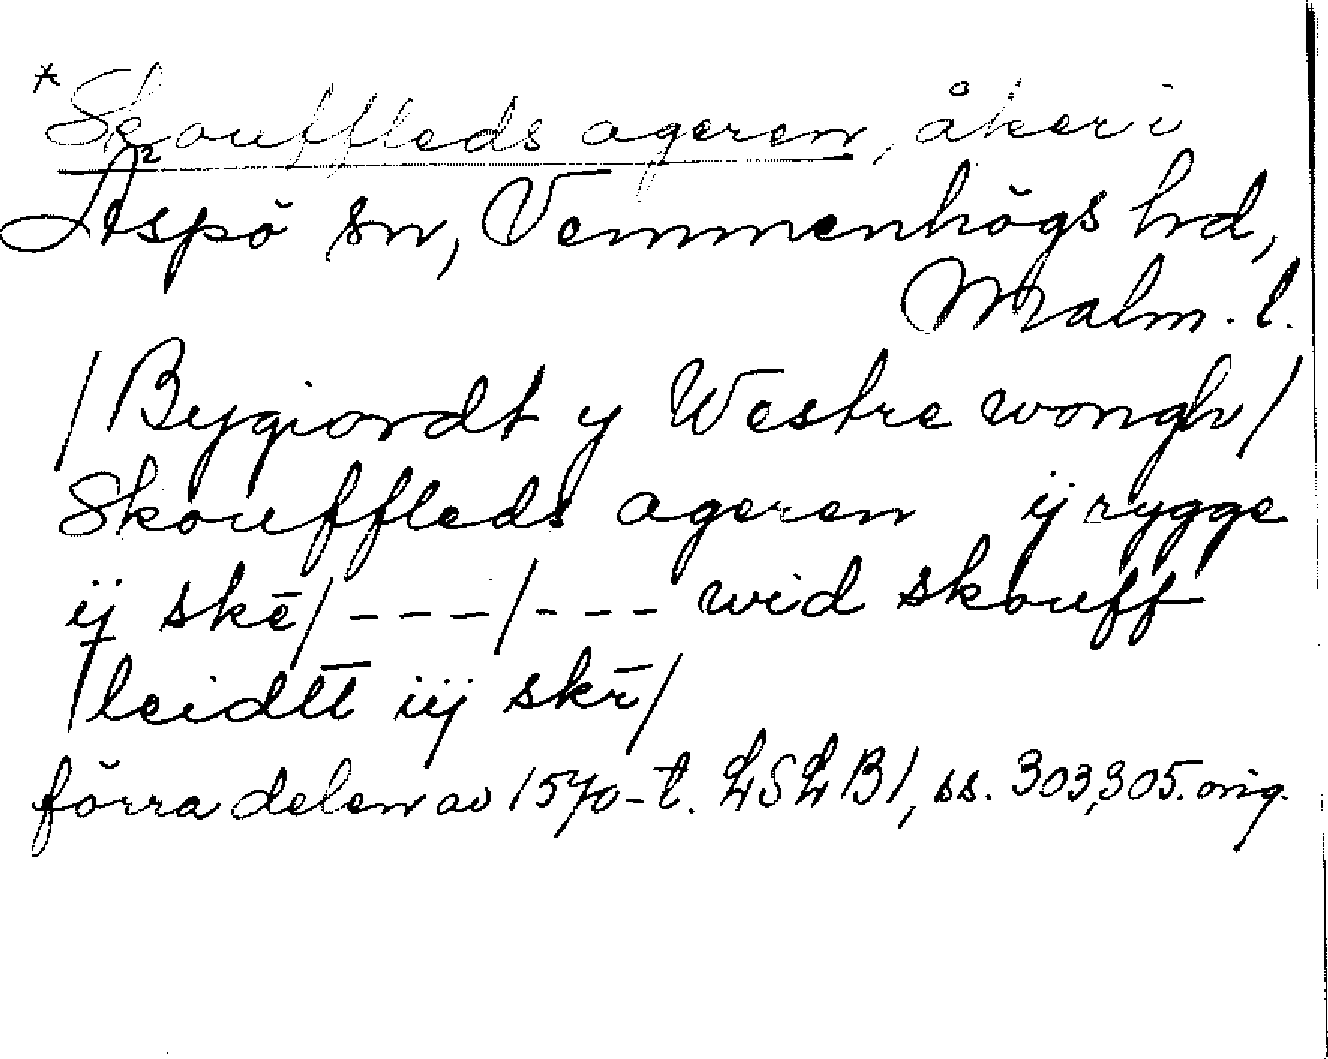 *Skouffleds ageren, åker i
Aspö sn, Vemmenhögs hd,
Malm. l.
/Bygiordt y Westre wongh/
Skouffleds ageren ij rygge
ij skē/---/--- wid skouff
/leidtt iij skē/
förra delen av 1570-t. LSLB1, ss. 303,305. orig.